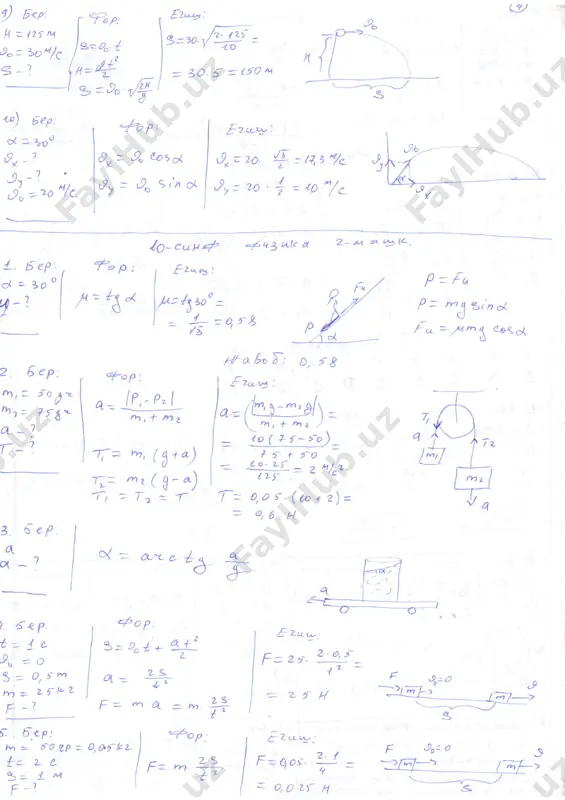 (9)
9) Бер:
H = 125 м
ϑ₀ = 30 м/с
S - ?
Фор:
S = ϑ₀ t
H = gt²/2
S = ϑ₀ √(2H/g)
Ечиш:
S = 30 · √(2·125/10) =
= 30 · 5 = 150 м
ϑ₀
H
S
10) Бер:
α = 30°
ϑx - ?
ϑy - ?
ϑ₀ = 20 м/с
Фор:
ϑx = ϑ₀ cosα
ϑy = ϑ₀ sinα
Ечиш:
ϑx = 20 · √3/2 = 17,3 м/с
ϑy = 20 · 1/2 = 10 м/с
ϑy
ϑ₀
α
ϑx
10-синф физика 2-машк.
1. Бер:
α = 30°
μ - ?
Фор:
μ = tg α
Ечиш:
μ = tg30° =
= 1/√3 = 0,58
Fи
P
α
P = Fи
P = mg sinα
Fи = μmg cosα
Жавоб: 0,58
2. Бер:
m₁ = 50 gr
m₂ = 75 gr
a - ?
T - ?
Фор:
a = |P₁ - P₂| / m₁ + m₂
T₁ = m₁ (g + a)
T₂ = m₂ (g - a)
T₁ = T₂ = T
Ечиш:
a = (|m₁g - m₂g| / m₁ + m₂) =
= 10(75 - 50) / 75 + 50 =
= 10·25 / 125 = 2 м/с²
T = 0,05 · (10 + 2) =
= 0,6 Н
T₁
a
m₁
T₂
m₂
a
3. Бер:
a
α - ?
α = arc tg a/g
a
α
4. Бер.
t = 1 с
ϑ₀ = 0
S = 0,5 m
m = 25 кг
F - ?
Фор:
S = ϑ₀ t + at²/2
a = 2S/t²
F = m a = m · 2S/t²
Ечиш:
F = 25 · 2·0,5/1² =
= 25 Н
F
m
ϑ₀=0
m
ϑ
S
5. Бер:
m = 50 гр = 0,05 кг
t = 2 с
S = 1 м
F - ?
Фор:
F = m 2S/t²
Ечиш:
F = 0,05 · 2·1/4 =
= 0,025 Н
F
m
ϑ₀=0
m
ϑ
S
FaylHub.uz
FaylHub.uz
FaylHub.uz
FaylHub.uz